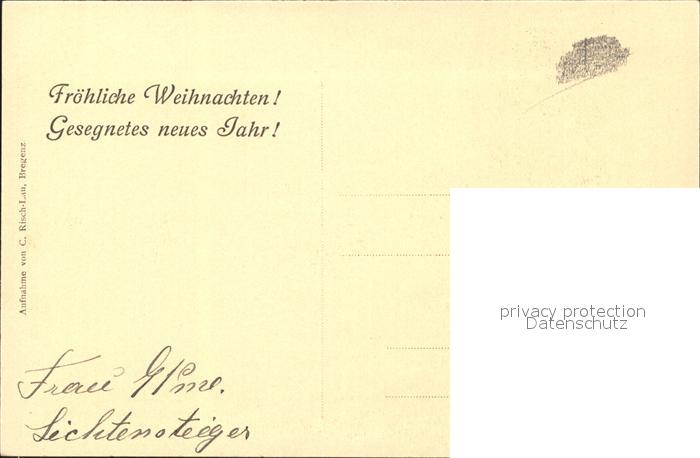 Fröhliche Weihnachten!
Gesegnetes neues Jahr!
Aufnahme von C. Risch-Lau, Bregenz
privacy protection
Datenschutz
Frau
Lichtensteiger